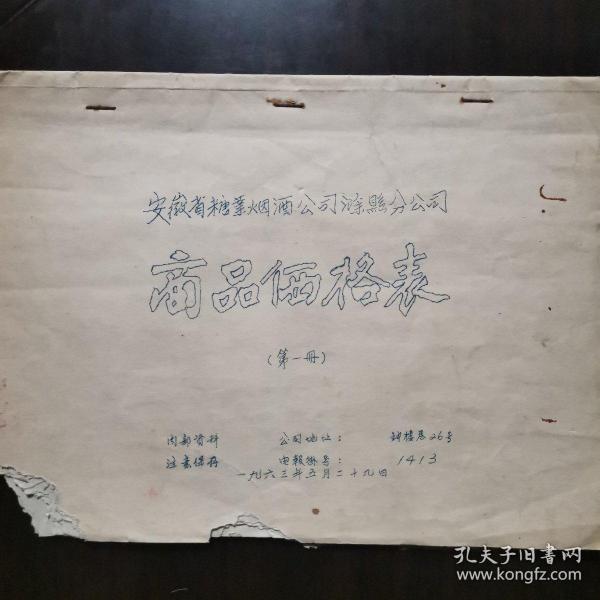 安徽省糖業烟酒公司滁縣分公司
商品価格表
（第一冊）
内部资料 公司地址： 鼓楼巷26号
注意保存 电報掛号： 1413
一九六三年五月二十九日
孔夫子旧书网
www.kongfz.com